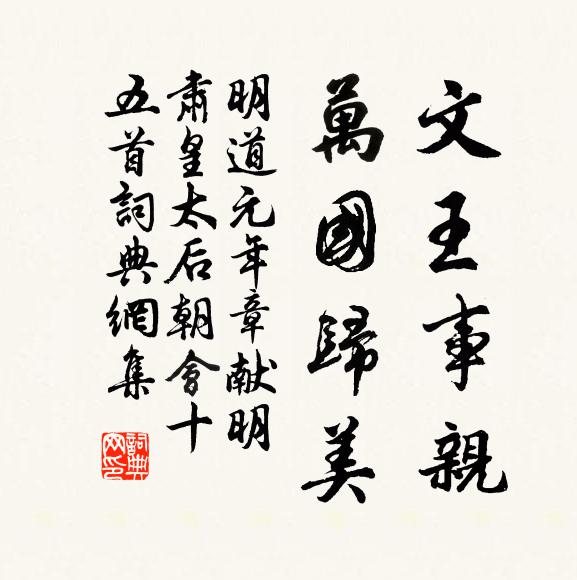 文王事親
萬國歸美
明道元年章献明
肅皇太后朝會十
五首詞典網集
詞典网印